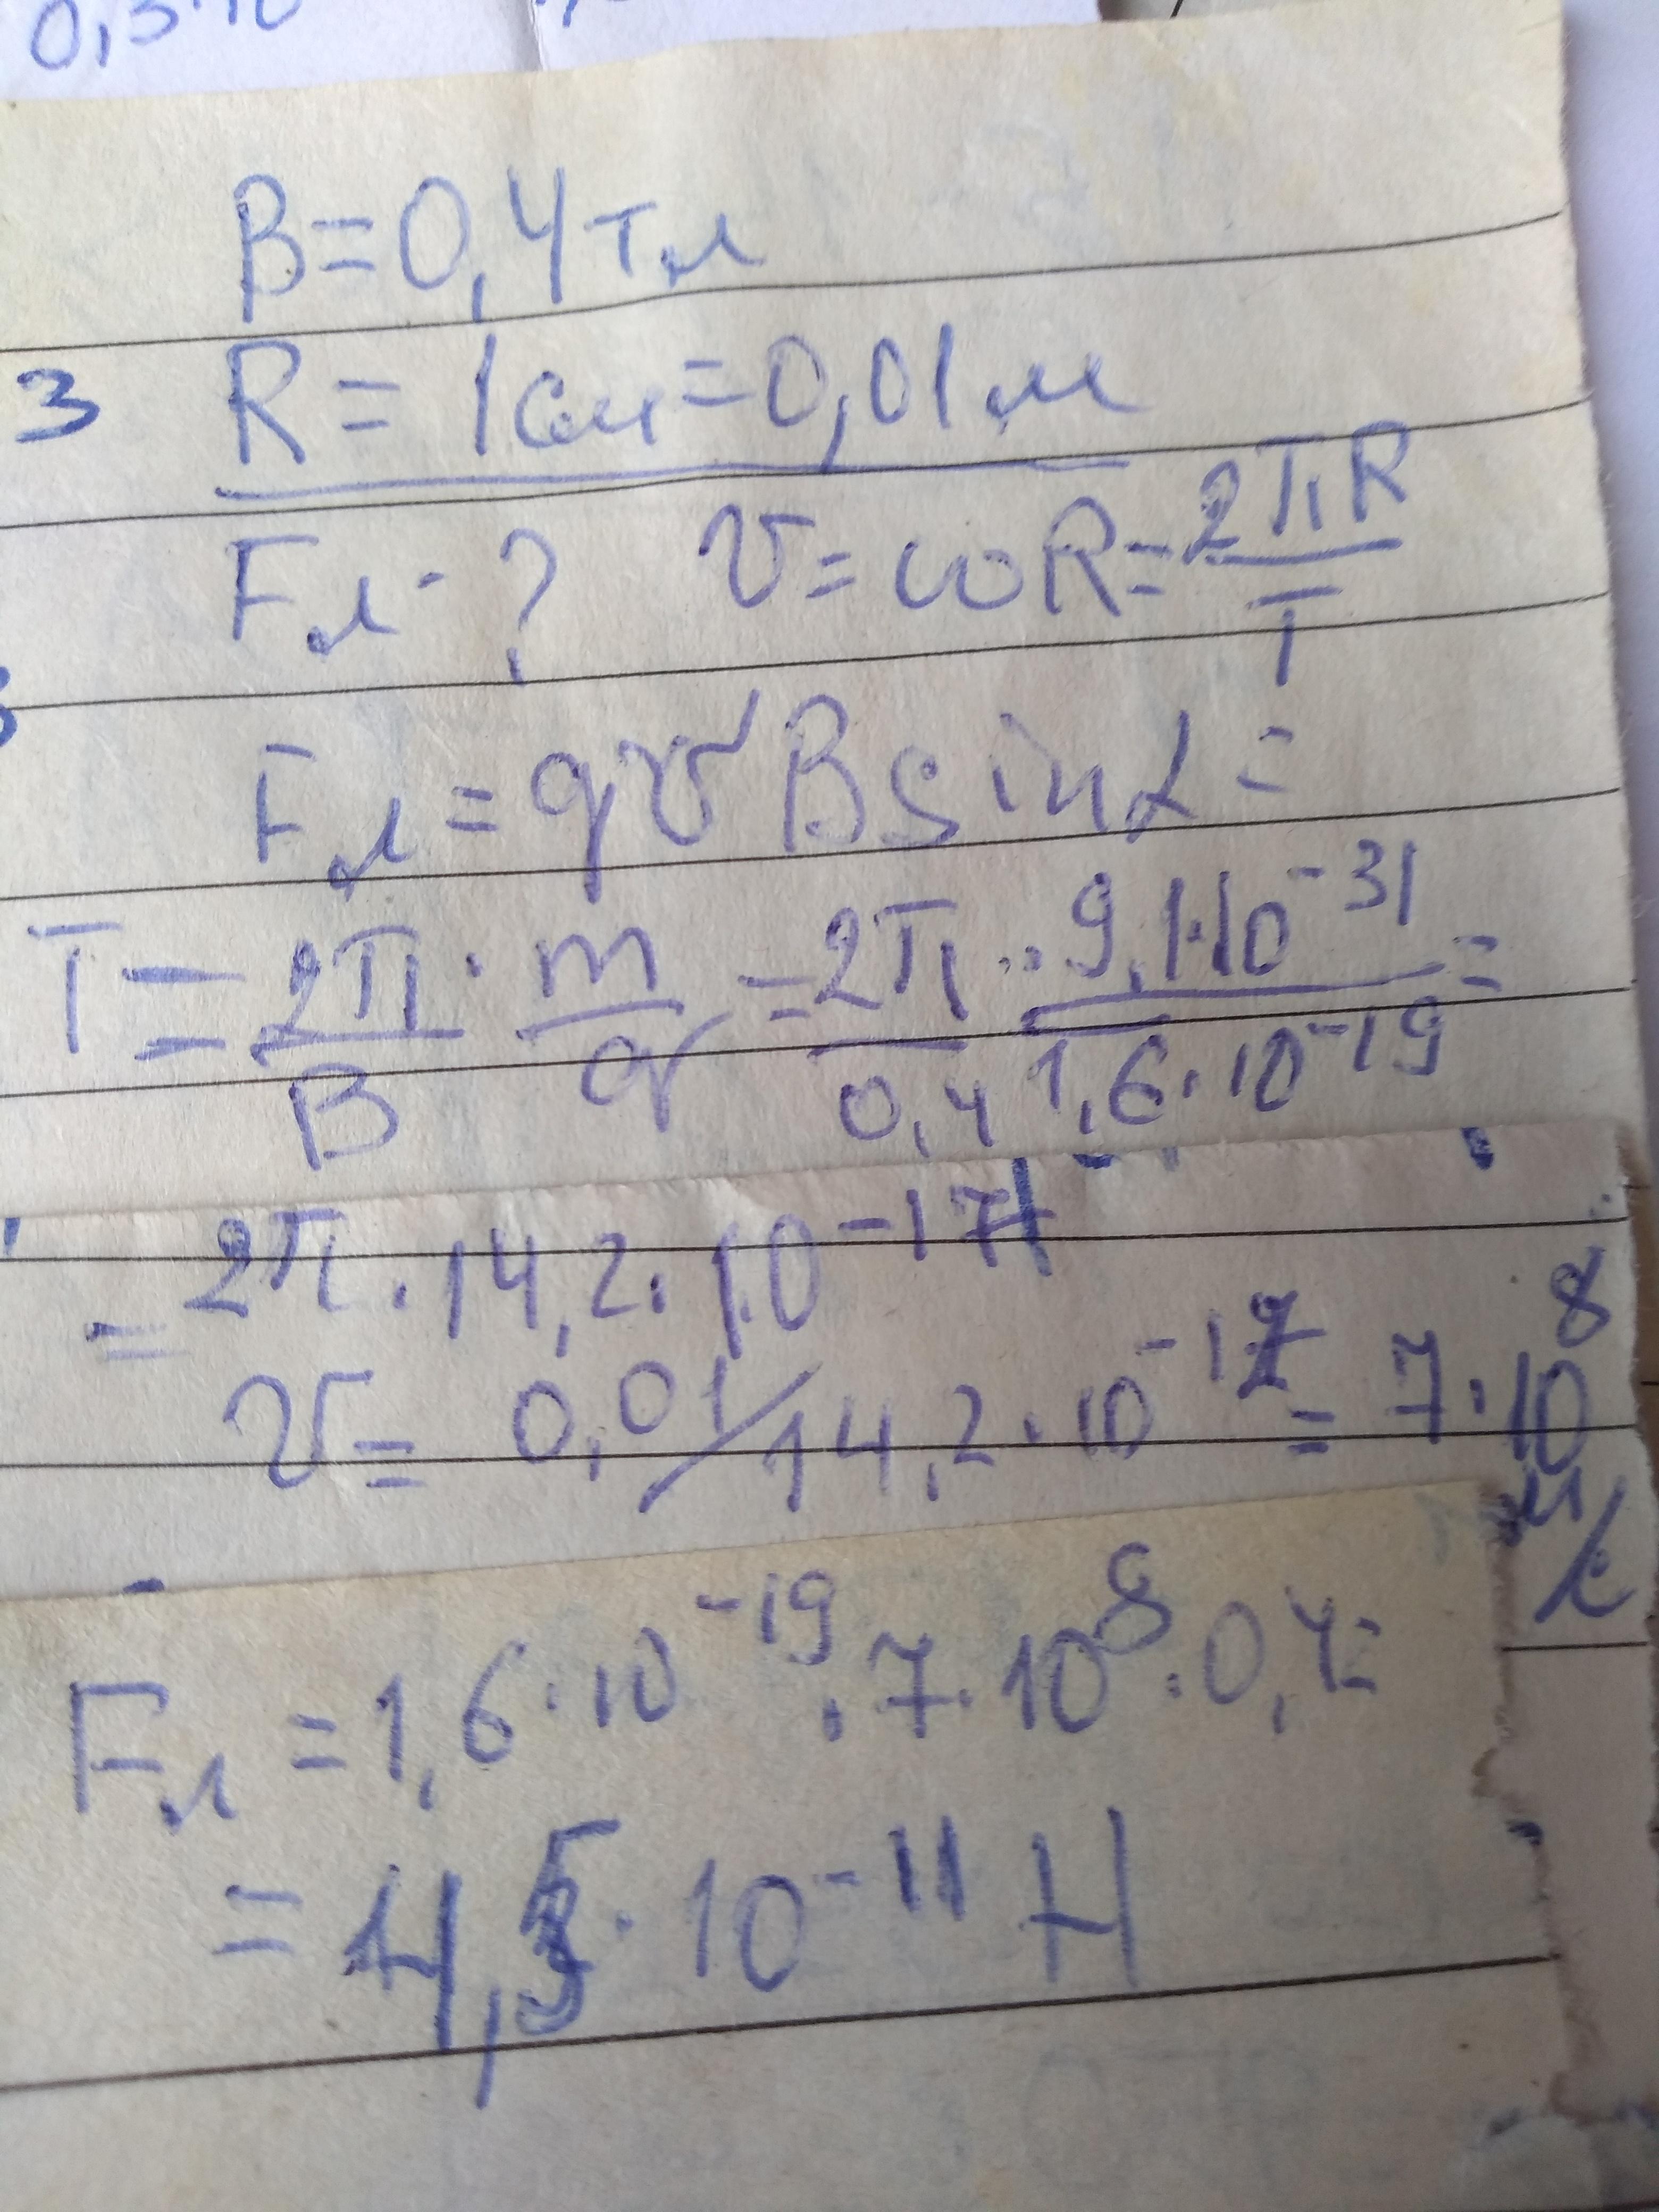 B=0,4 Тл
3 R = 1 см = 0,01 м
Fл - ? υ = ωR = 2πR/T
Fл = qυB sin α =
T = 2π/B · m/q = 2π/0,4 · 9,1·10⁻³¹/1,6·10⁻¹⁹ =
= 2π · 14,2 · 10⁻¹²
υ = 0,01/14,2 · 10⁻¹² = 7 · 10⁸ м/с
Fл = 1,6 · 10⁻¹⁹ · 7 · 10⁸ · 0,4 =
= 4,5 · 10⁻¹¹ Н